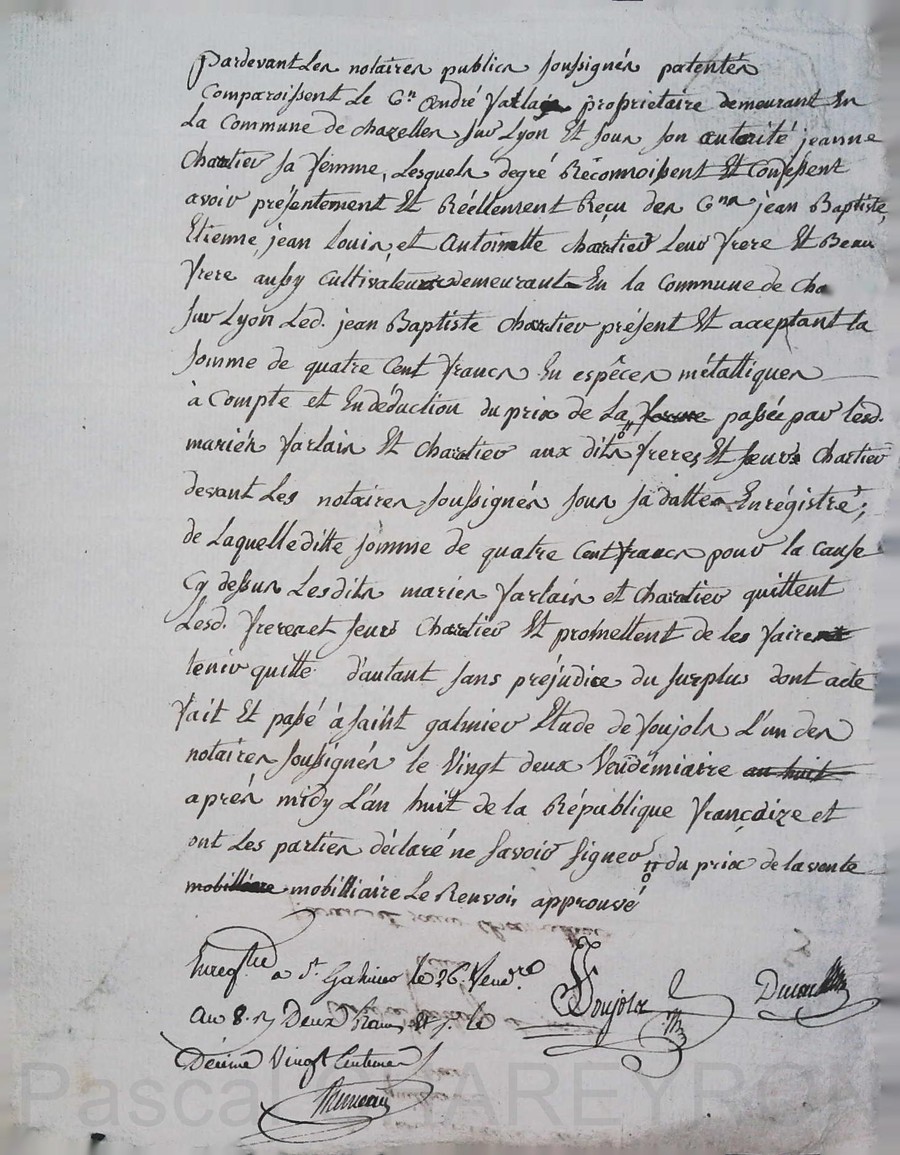 Pardevant Les notaires publics soussignés patentés
Comparoissent Le Cen André Varlain proprietaire demeurant En
La Commune de chazelles sur Lyon Et sous son autorité jeanne
Chartier sa femme, Lesquels degré Réconnoissent Et Confessent
avoir présentement Et Réellement Reçu des Cens jean Baptiste,
Etienne, jean Louis, et Antoinette chartier Leur frere Et Beau
frere aussy cultivateurs demeurant En la Commune de cha
sur Lyon Led. jean Baptiste chartier présent Et acceptant la
somme de quatre Cent francs En espêces métalliques
à Compte et En déduction du prix de La passée par lesd.
mariés Varlain Et chartier aux dits freres Et seurs chartier
devant Les notaires soussignés sous sa datte Enrégistré;
de Laquelle ditte somme de quatre Cent francs pour la cause
Cy dessus Lesdits mariés Varlain et chartier quittent
Lesd. freres et seurs chartier Et promettent de les faire
tenir quitte d'autant sans préjudice du surplus dont acte
fait Et passé à saint galmier Etude de Voujols L'un des
notaires soussignés le Vingt deux Vendémiaire an huit
aprés midy L'an huit de la République françaize et
ont Les parties déclaré ne savoir signer du prix de la vente
mobilliaire mobilliaire Le Renvoi approuvé
Enregtré a St. Galmier le 26 Vendre
An 8. Deux francs
Décime Vingt Centimes
Voujols
Pascal CHAREYRON